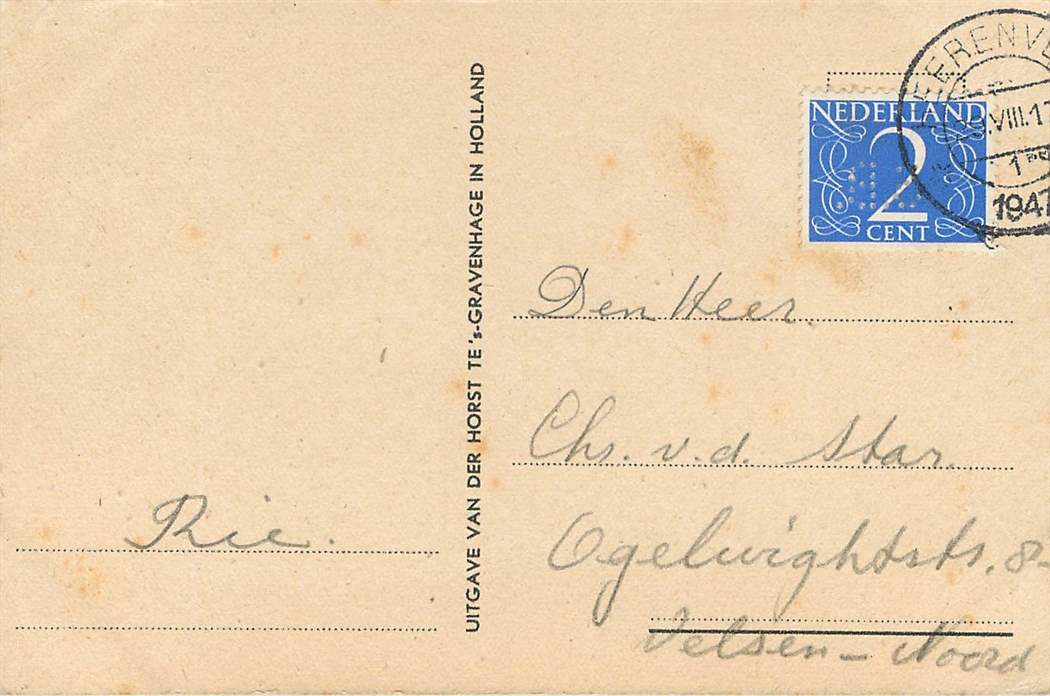 UITGAVE VAN DER HORST TE 's-GRAVENHAGE IN HOLLAND
NEDERLAND
2
CENT
EERENVE
29.VIII.17
1947
Den Heer
Chs. v.d. Star.
Ogelwightstr. 8
Velsen-Noord
Rie.